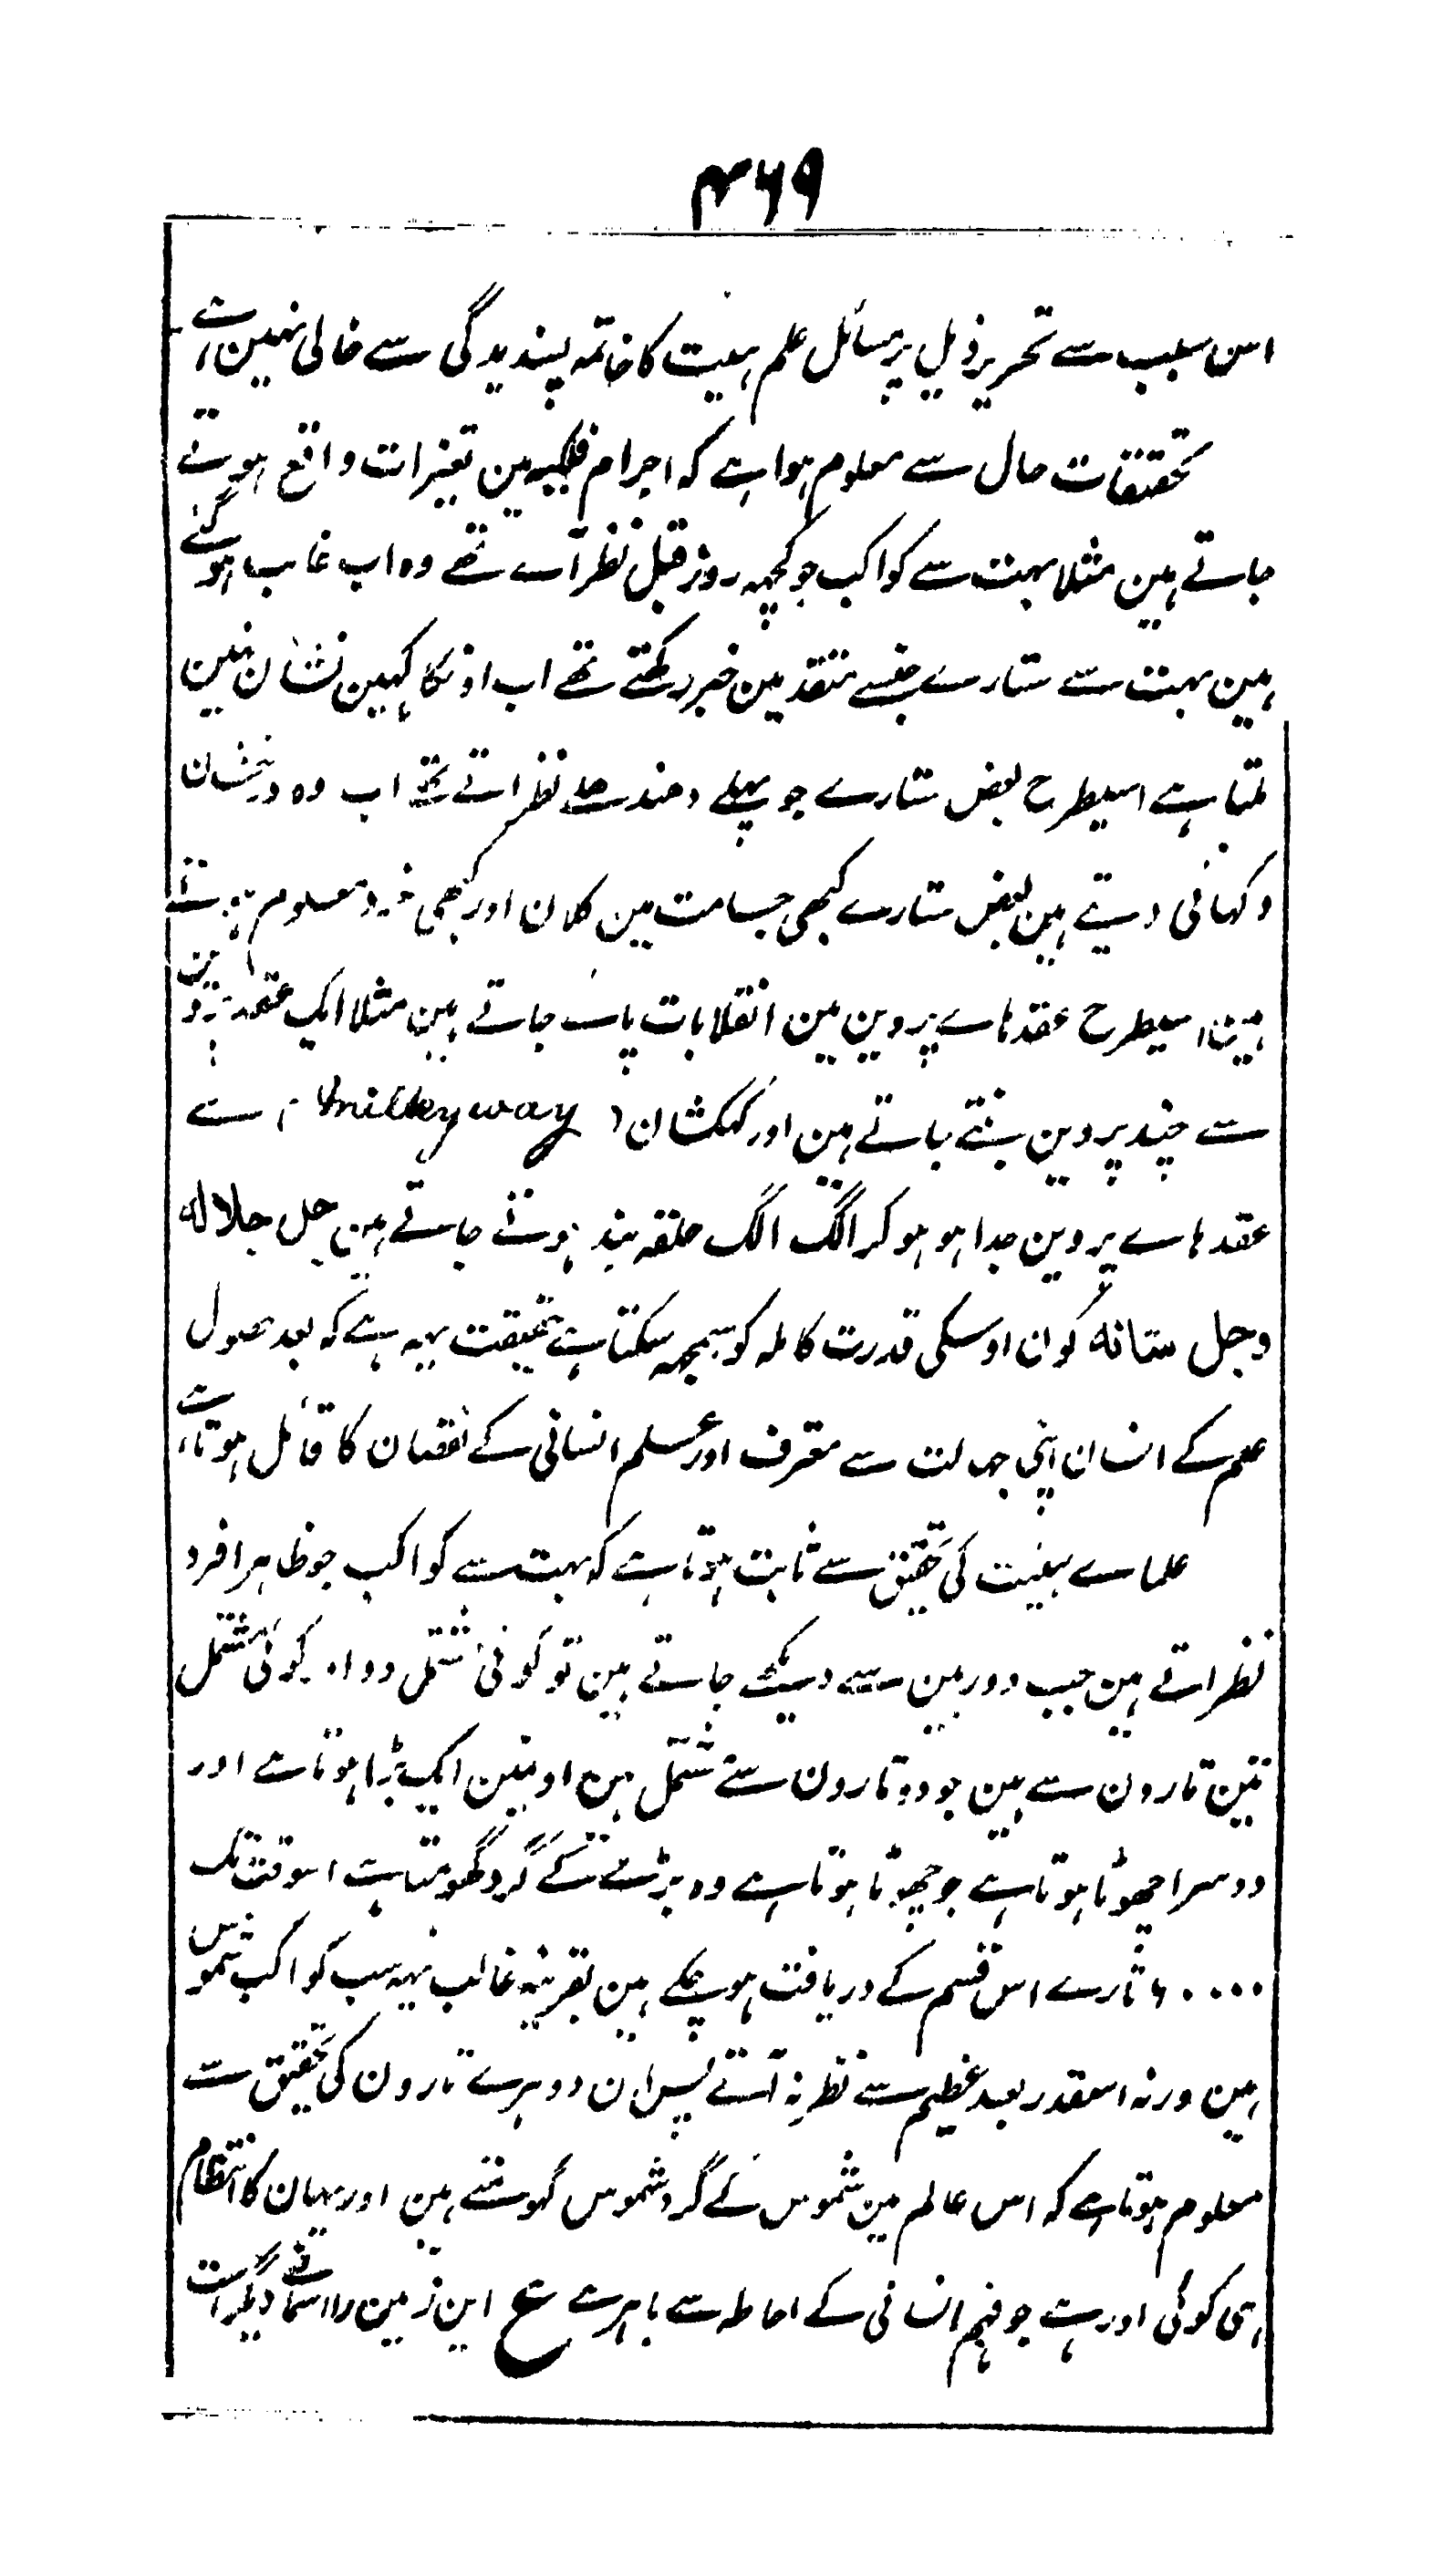 ۴۶۹
اس سبب سے تحریر ذیل پر مسائل علم ہیئت کا خاتمہ پسندیدگی سے خالی نہین ہے
تحقیقات حال سے معلوم ہوا ہے کہ اجرام فلکیہ مین تغیرات واقع ہوتے
جاتے ہین مثلا بہت سے کواکب جو کچہہ روز قبل نظر آتے تھے وہ اب غائب ہو گئے
ہین بہت سے ستارے جنسے متقدمین خبر رکھتے تھے اب اونکا کہین نشان نہین
ملتا ہے اسیطرح بعض ستارے جو پہلے دھندھلے نظر اتے تھے اب وہ درخشان
دکہائی دیتے ہین بعض ستارے کبھی جسامت مین کلان اور کبھی خورد معلوم ہوتے
ہین اسیطرح عقدہاے پروین مین انقلابات پاے جاتے ہین مثلا ایک عقدہ پروین
سے چند پروین بنتے جاتے ہین اور کہکشان ( milky way ) سے
عقدہاے پروین جدا ہو ہو کر الگ الگ حلقہ بند ہوتے جاتے ہین جل جلالہ
وجل شانہ کون اوسکی قدرت کاملہ کو سمجہہ سکتا ہے حقیقت یہہ ہے کہ بعد حصول
علم کے انسان اپنی جہالت سے معترف اور علم انسانی کے نقصان کا قائل ہوتا ہے
علماے ہیئت کی تحقیق سے ثابت ہوتا ہے کہ بہت سے کواکب جو ظاہرا فرد
نظر اتے ہین جب دوربین سے دیکھے جاتے ہین تو کوئی مشتمل دو اور کوئی مشتمل
تین تارون سے ہین جو دو تارون سے مشتمل ہین اونمین ایک بڑا ہوتا ہے اور
دوسرا چھوٹا ہوتا ہے جو چھوٹا ہوتا ہے وہ بڑے کے گرد گھومتا ہے اسوقت تک
۶۰۰۰ تارے اس قسم کے دریافت ہو چکے ہین بقرینہ غالب یہہ سب کواکب شموس
ہین ورنہ اسقدر بعد عظیم سے نظر نہ آتے پس ان دوہرے تارون کی تحقیق سے
معلوم ہوتا ہے کہ اس عالم مین شموس کے گرد شموس گہومتے ہین اور یہان کا انتظام
ہی کوئی اور ہے جو فہم انسانی کے احاطہ سے باہر ہے ع این زمین را آسمانے دیگر است